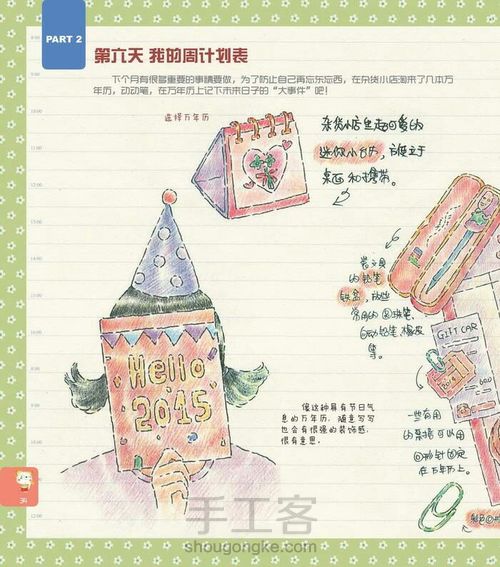 PART 2
第六天 我的周计划表
下个月有很多重要的事情要做，为了防止自己再忘东忘西，在杂货小店淘来了几本万
年历，动动笔，在万年历上记下未来日子的“大事件”吧！
选择万年历
杂货小店里超可爱的
迷你小台历，方便立于
桌面和携带。
装文具
的铅笔
铁盒，放些
常用的圆珠笔、
自动铅笔、橡皮
等。
GIFT CAR
Hello
2015
像这种具有节日气
息的万年历，随意写写
也会有很强的装饰感，
很有意思。
一些有用
的票据可以用
回形针固定
在万年历上。
手工客
shougongke.com